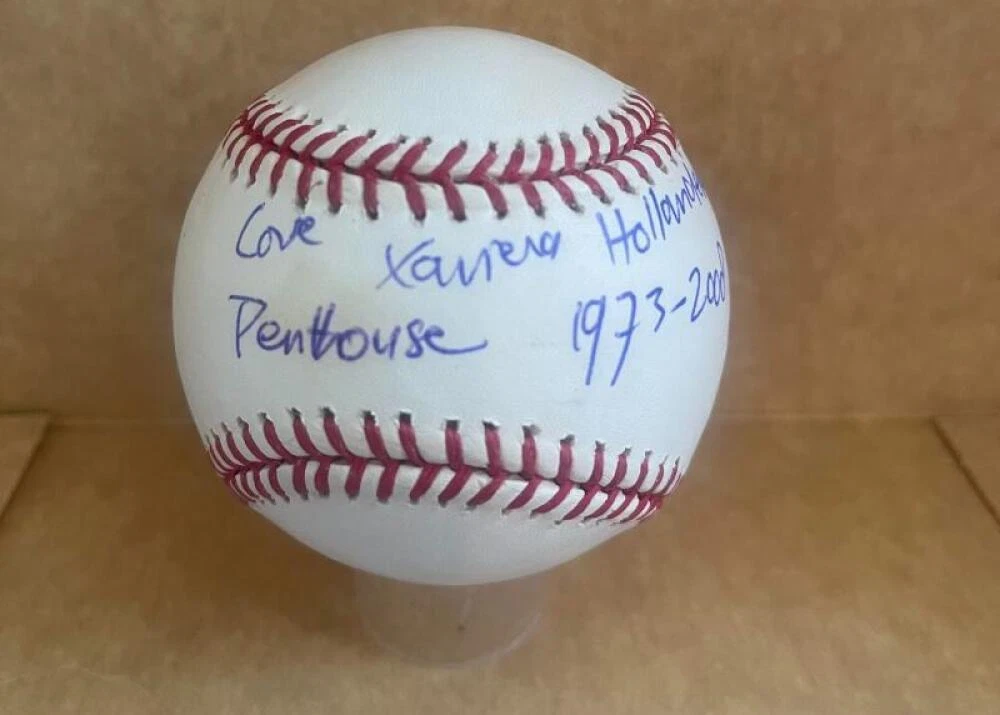 Love Xaviera Hollander
Penthouse 1973-2008